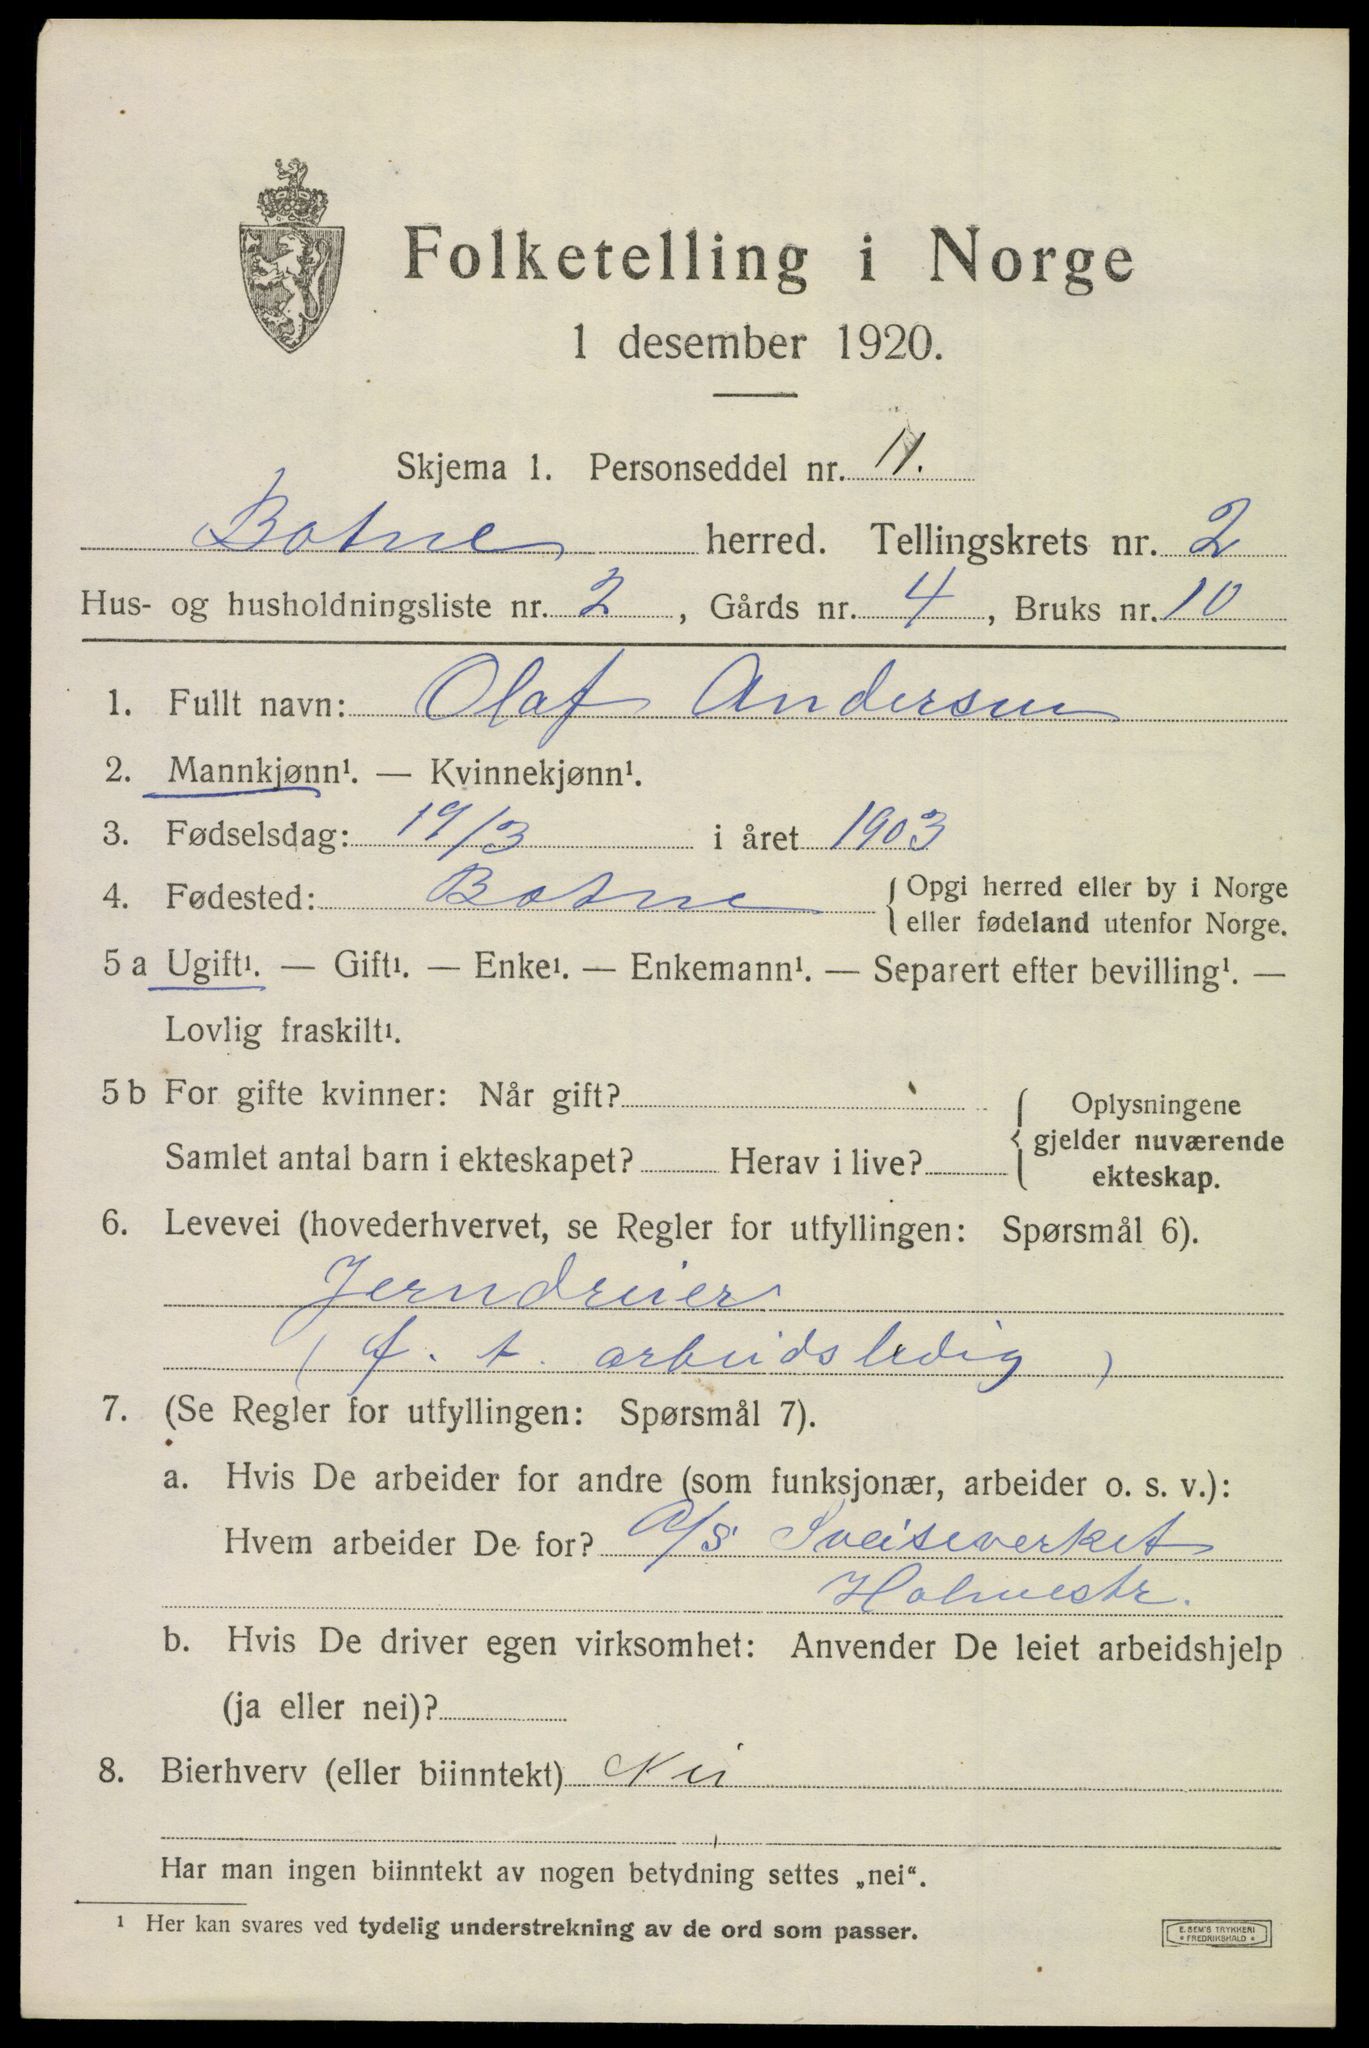 Folketelling i Norge
1 desember 1920.
Skjema 1. Personseddel nr. 11.
Botne herred. Tellingskrets nr. 2
Hus- og husholdningsliste nr. 2, Gårds nr. 4, Bruks nr. 10
1. Fullt navn: Olaf Andersen
2. Mannkjønn¹. — Kvinnekjønn¹.
3. Fødselsdag: 19/3 i året 1903
4. Fødested: Botne { Opgi herred eller by i Norge
eller fødeland utenfor Norge.
5 a Ugift¹. — Gift¹. — Enke¹. — Enkemann¹. — Separert efter bevilling¹. —
Lovlig fraskilt¹.
5 b For gifte kvinner: Når gift?
Samlet antal barn i ekteskapet? Herav i live?
{ Oplysningene
gjelder nuværende
ekteskap.
6. Levevei (hovederhvervet, se Regler for utfyllingen: Spørsmål 6).
Jerndreier
(f. t. arbeidsledig)
7. (Se Regler for utfyllingen: Spørsmål 7).
a. Hvis De arbeider for andre (som funksjonær, arbeider o. s. v.):
Hvem arbeider De for? A/S Sveiseverket
Holmestr.
b. Hvis De driver egen virksomhet: Anvender De leiet arbeidshjelp
(ja eller nei)?
8. Bierhverv (eller biinntekt) Nei
Har man ingen biinntekt av nogen betydning settes „nei“.
¹ Her kan svares ved tydelig understrekning av de ord som passer.
E. SEM'S TRYKKERI
* FREDRIKSHALD *